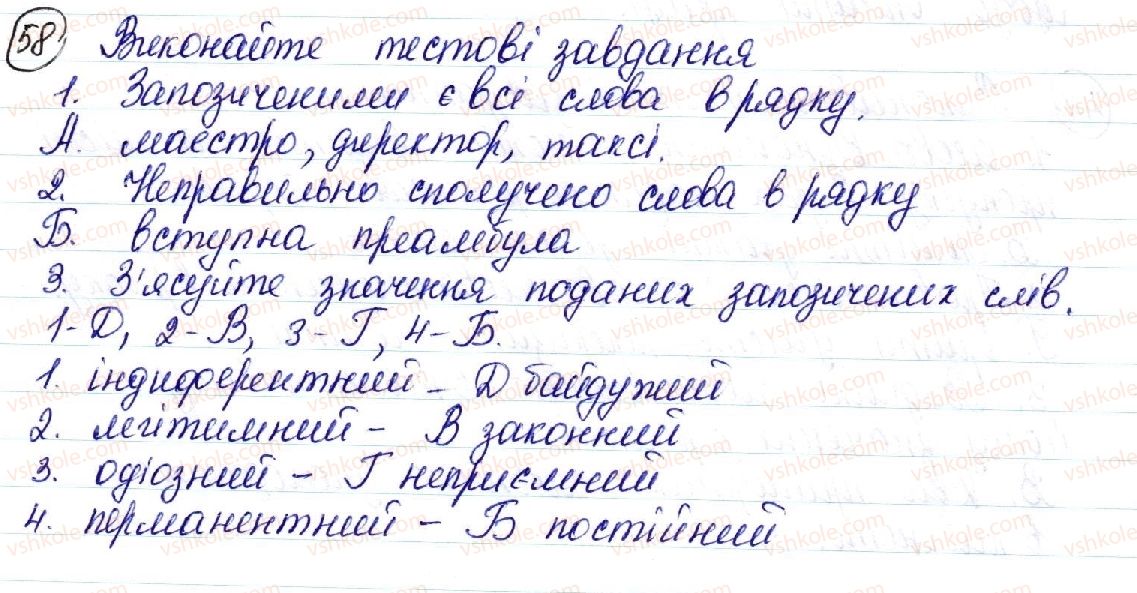 58 Виконайте тестові завдання
1. Запозиченими є всі слова в рядку.
А. маестро, директор, таксі.
2. Неправильно сполучено слова в рядку
Б. вступна преамбула
3. З'ясуйте значення поданих запозичених слів.
1-Д, 2-В, 3-Г, 4-Б.
1. індиферентний – Д байдужий
2. легітимний – В законний
3. одіозний – Г неприємний
4. перманентний – Б постійний